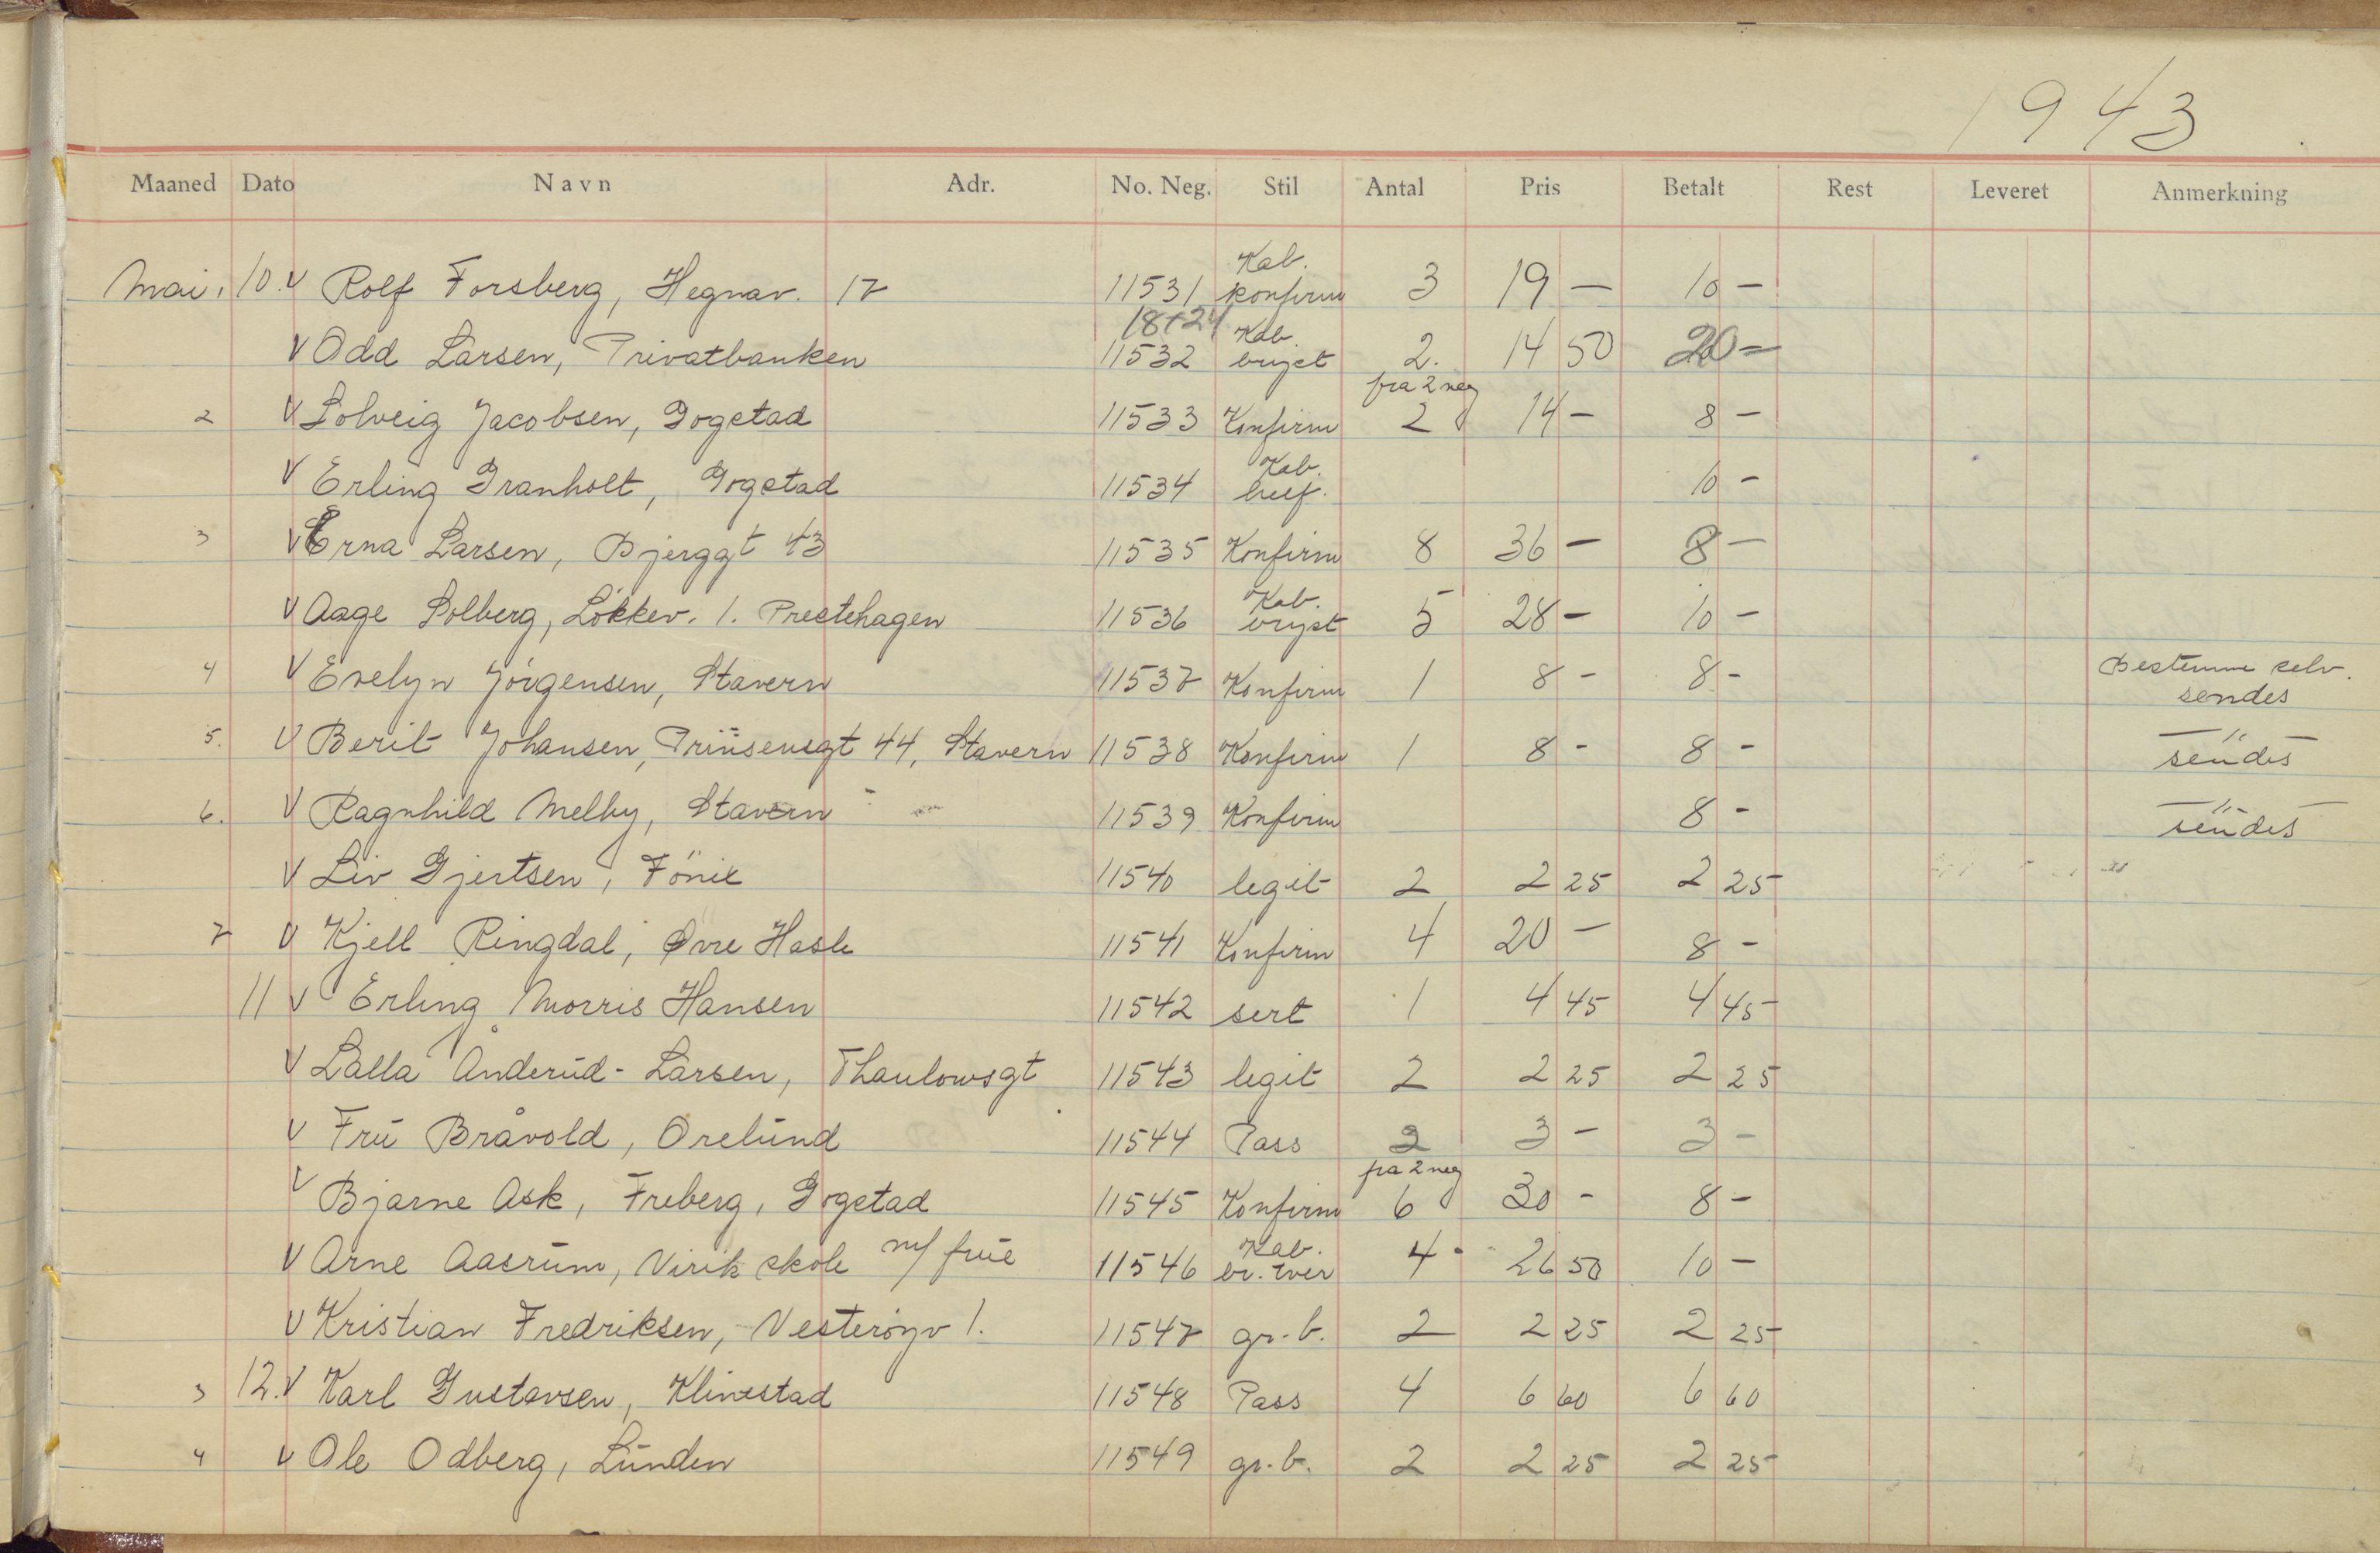 1943
Maaned Dato Navn Adr. No. Neg. Stil Antal Pris Betalt Rest Leveret Anmerkning
Mai, 10. V Rolf Forsberg, Hegnav. 17 11531 Kab. Konfirm 3 19 — 10 —
V Odd Larsen, Privatbanken 18+24 11532 Kab. bryst 2. 14 50 20 —
2 V Solveig Jacobsen, Gogstad 11533 Konfirm fra 2 neg 2 14 — 8 —
V Erling Granholt, Gogstad 11534 Kab. helf. 10 —
3 V Erna Larsen, Bjerggt 43 11535 Konfirm 8 36 — 8 —
V Aage Solberg, Løkkev. 1. Prestehagen 11536 Kab. bryst 5 28 — 10 —
4 V Evelyn Jörgensen, Stavern 11537 Konfirm 1 8 — 8 — Bestemme selv. sendes
5. V Berit Johansen, Prinsensgt 44, Stavern 11538 Konfirm 1 8 — 8 — —"— sendes
6. V Ragnhild Melby, Stavern 11539 Konfirm 8 — —"— sendes
V Liv Gjertsen, Fönix 11540 legit 2 2 25 2 25
7 V Kjell Ringdal, Øvre Hasle 11541 Konfirm 4 20 — 8 —
11 V Erling Morris Hansen 11542 sert 1 4 45 4 45
V Lalla Anderud-Larsen, Thaulowsgt 11543 legit 2 2 25 2 25
V Fru Bråvold, Orelund 11544 Pass 2 3 — 3 —
V Bjarne Ask, Freberg, Gogstad 11545 Konfirm fra 2 neg 6 30 — 8 —
V Arne Aasrum, Virik skole m/ frue 11546 Kab. br. tver 4 26 50 10 —
V Kristian Fredriksen, Vesteröyv 1. 11547 gr. b. 2 2 25 2 25
3 12. V Karl Gustavsen, Klinestad 11548 Pass 4 6 60 6 60
4 V Ole Odberg, Lunden 11549 gr. b. 2 2 25 2 25